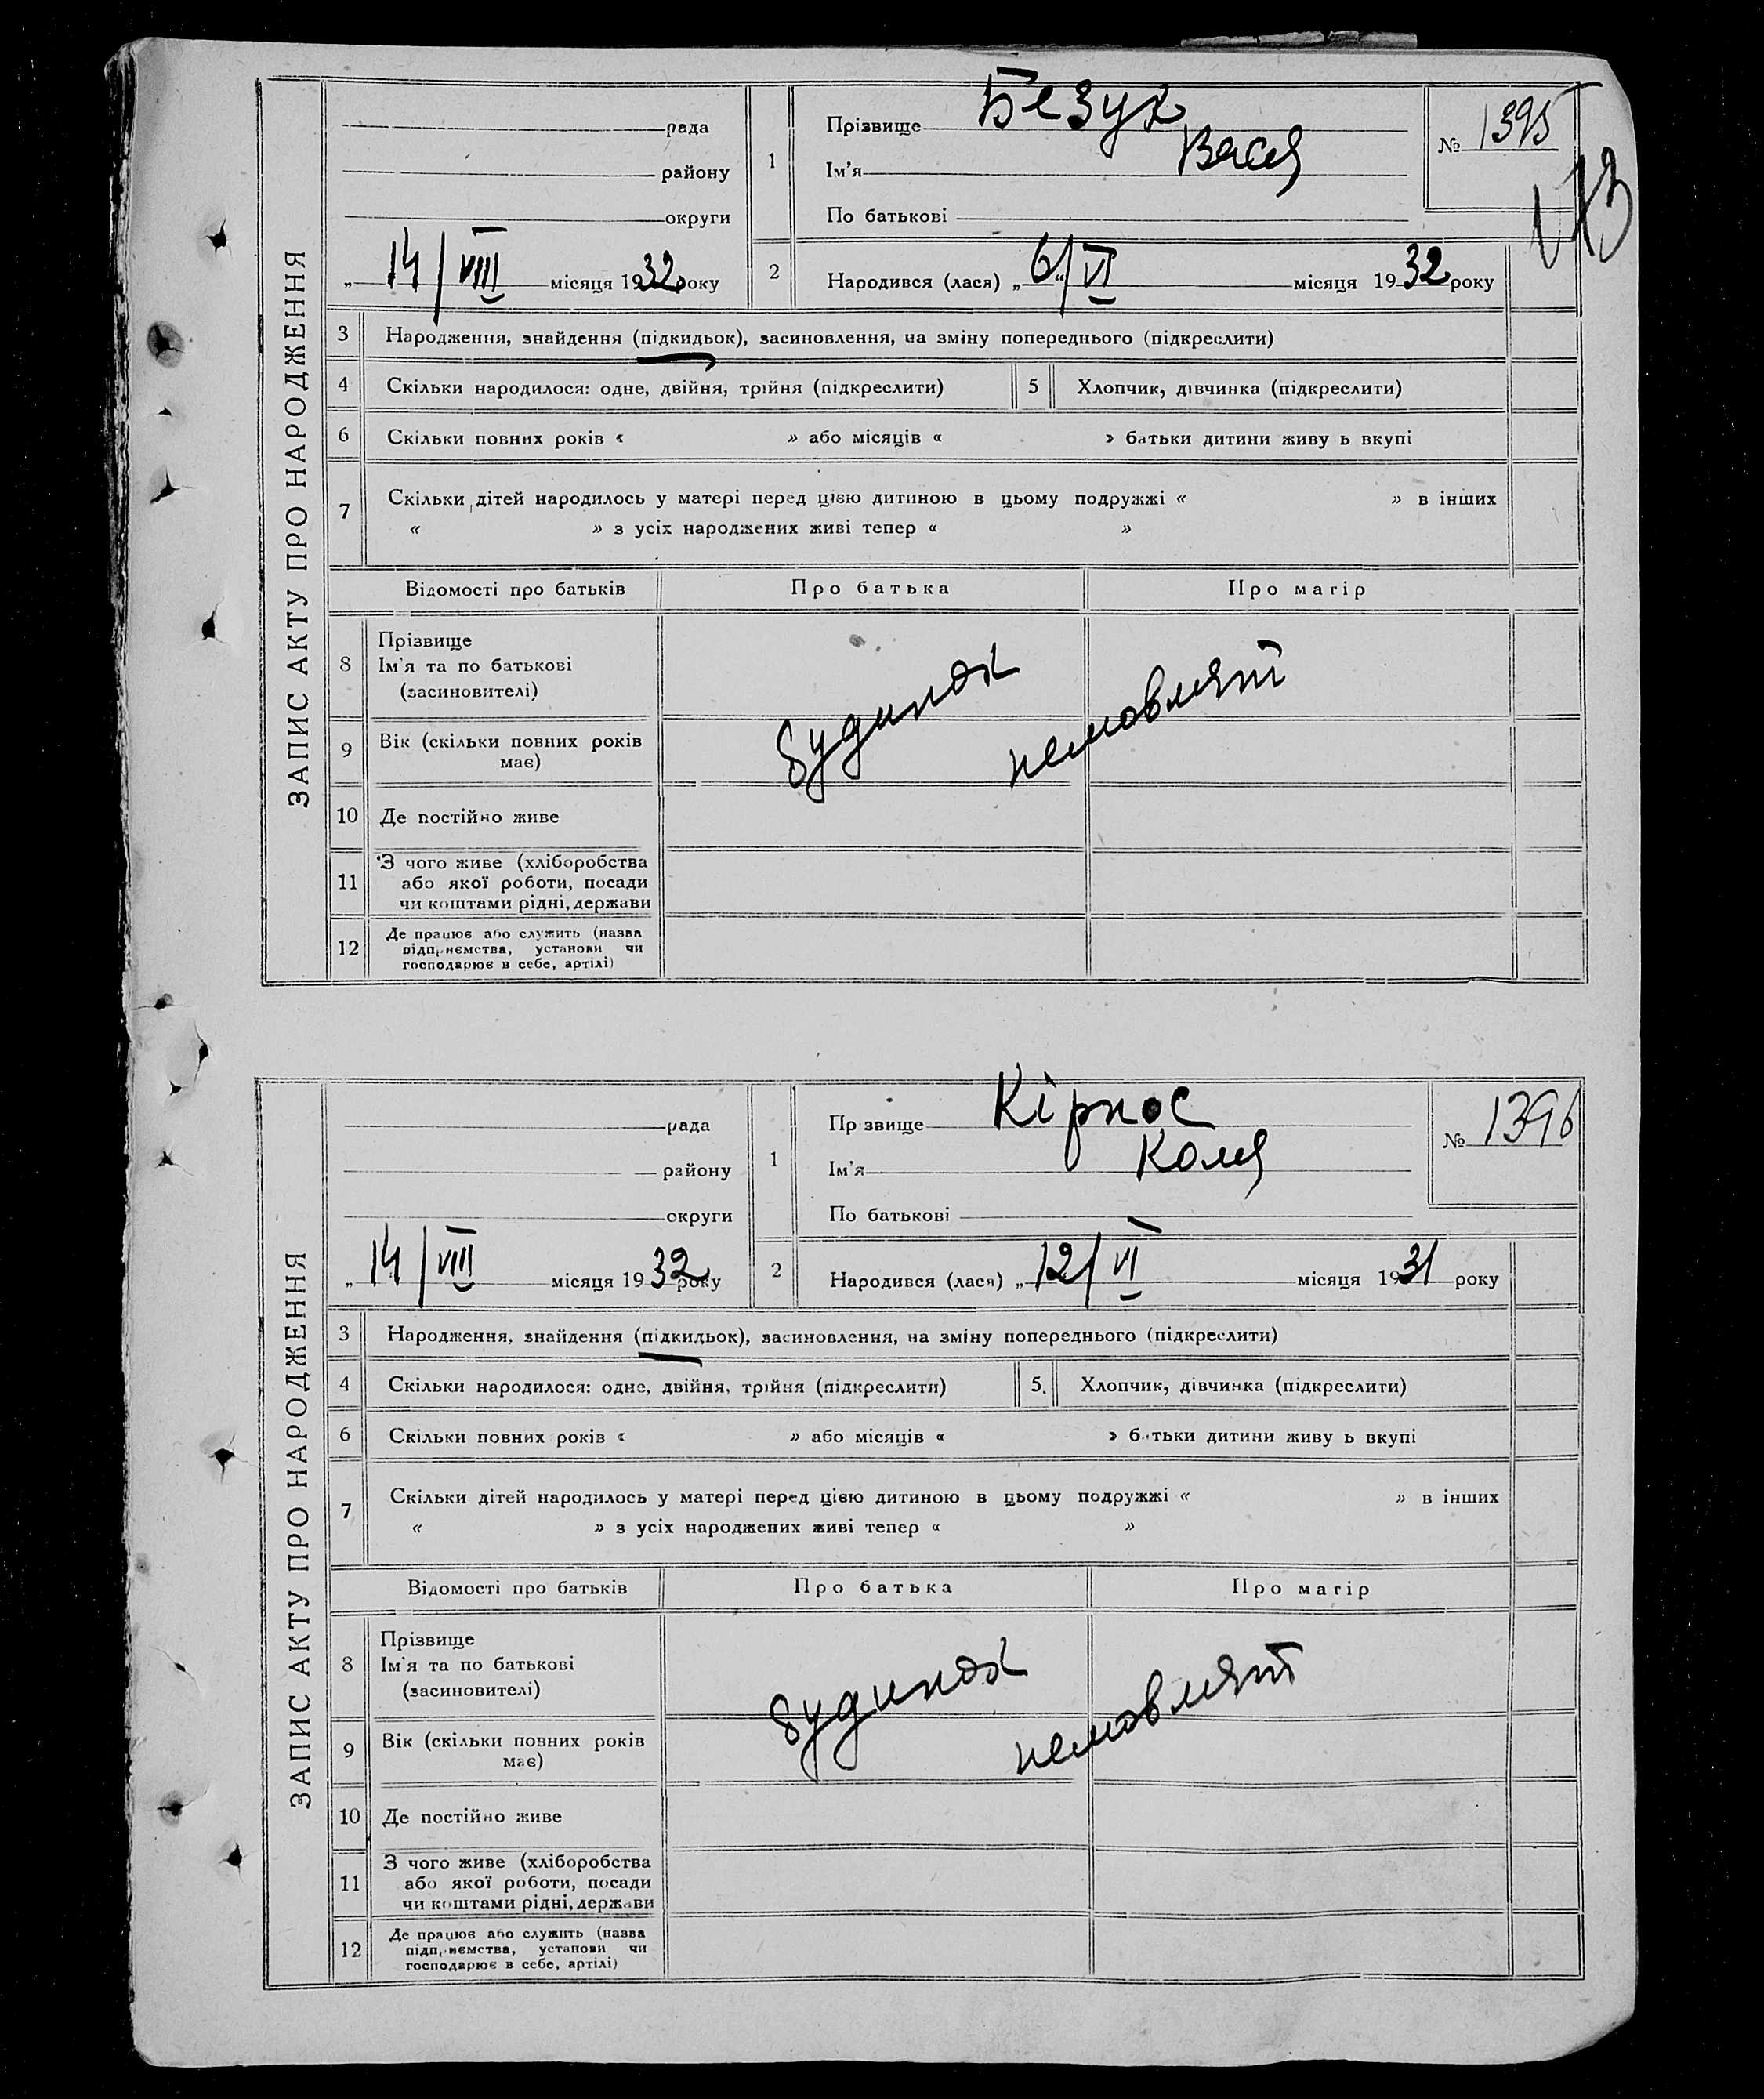 ЗАПИС АКТУ ПРО НАРОДЖЕННЯ
рада
району
округи
„ 14/VIII місяця 1932 року
1
Прізвище Безук
Ім'я Вася
По батькові
№ 1395
173
2
Народився (лася) „ 6/“ VI місяця 1932 року
3 Народження, знайдення (підкидьок), засиновлення, на зміну попереднього (підкреслити)
4 Скільки народилося: одне, двійня, трійня (підкреслити) 5 Хлопчик, дівчинка (підкреслити)
6 Скільки повних років « » або місяців « » батьки дитини живу ь вкупі
7 Скільки дітей народилось у матері перед цією дитиною в цьому подружжі « » в інших
« » з усіх народжених живі тепер « »
Відомості про батьків Про батька Про матір
8 Прізвище
Ім'я та по батькові
(засиновителі)
будинок немовлят
9 Вік (скільки повних років
має)
10 Де постійно живе
11 З чого живе (хліборобства
або якої роботи, посади
чи коштами рідні, держави
12 Де працює або служить (назва
підприємства, установи чи
господарює в себе, артілі)
ЗАПИС АКТУ ПРО НАРОДЖЕННЯ
рада
району
округи
„ 14/VIII місяця 1932 року
1
Пр звище Кірнос
Ім'я Коля
По батькові
№ 1396
2
Народився (лася) „ 12/VI місяця 1931 року
3 Народження, знайдення (підкидьок), засиновлення, на зміну попереднього (підкреслити)
4 Скільки народилося: одне, двійня, трійня (підкреслити) 5. Хлопчик, дівчинка (підкреслити)
6 Скільки повних років « » або місяців « » батьки дитини живу ь вкупі
7 Скільки дітей народилось у матері перед цією дитиною в цьому подружжі « » в інших
« » з усіх народжених живі тепер « »
Відомості про батьків Про батька Про матір
8 Прізвище
Ім'я та по батькові
(засиновителі)
будинок немовлят
9 Вік (скільки повних років
має)
10 Де постійно живе
11 З чого живе (хліборобства
або якої роботи, посади
чи коштами рідні, держави
12 Де працює або служить (назва
підприємства, установи чи
господарює в себе, артілі)